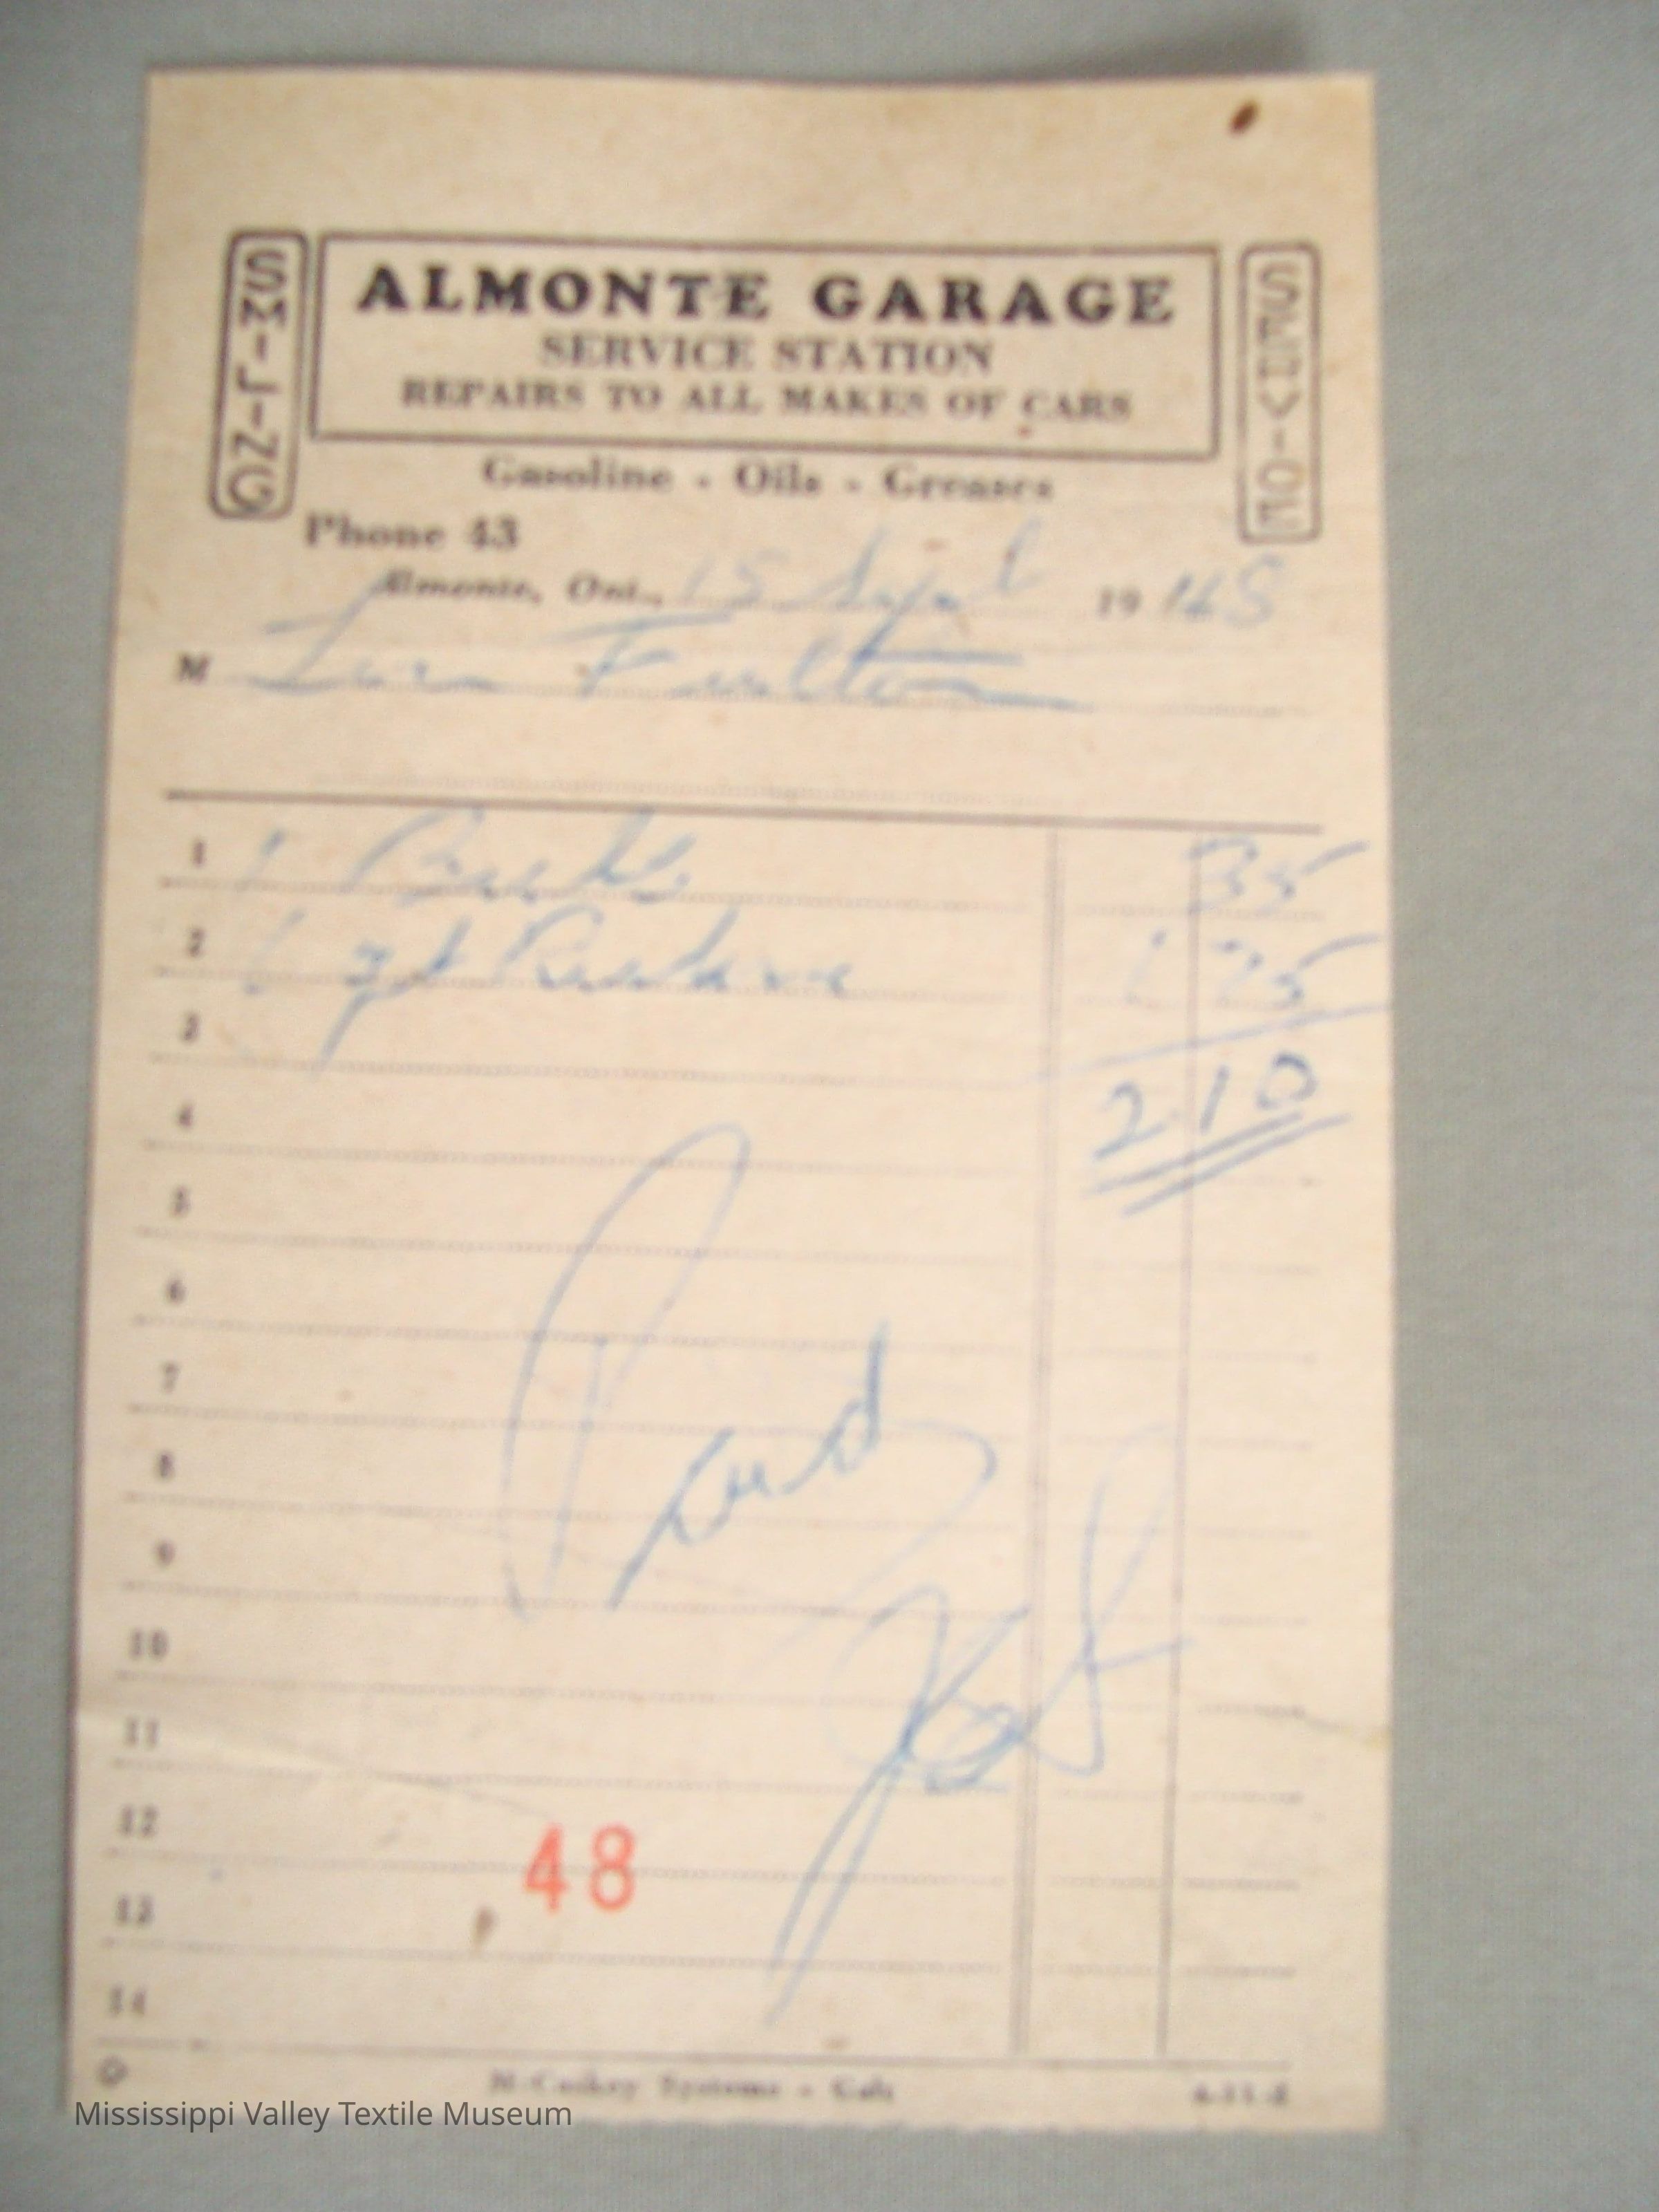 SMILING
ALMONTE GARAGE
SERVICE STATION
REPAIRS TO ALL MAKES OF CARS
SERVICE
Gasoline - Oils - Greases
Phone 43
Almonte, Ont., 15 Sept 19 48
M Fulton
1 1 35
2 1 1 75
3 2 10
4
5
6
7
8 Paid
9
10
11
12
48
13
14
McCaskey Systems - Galt
Mississippi Valley Textile Museum